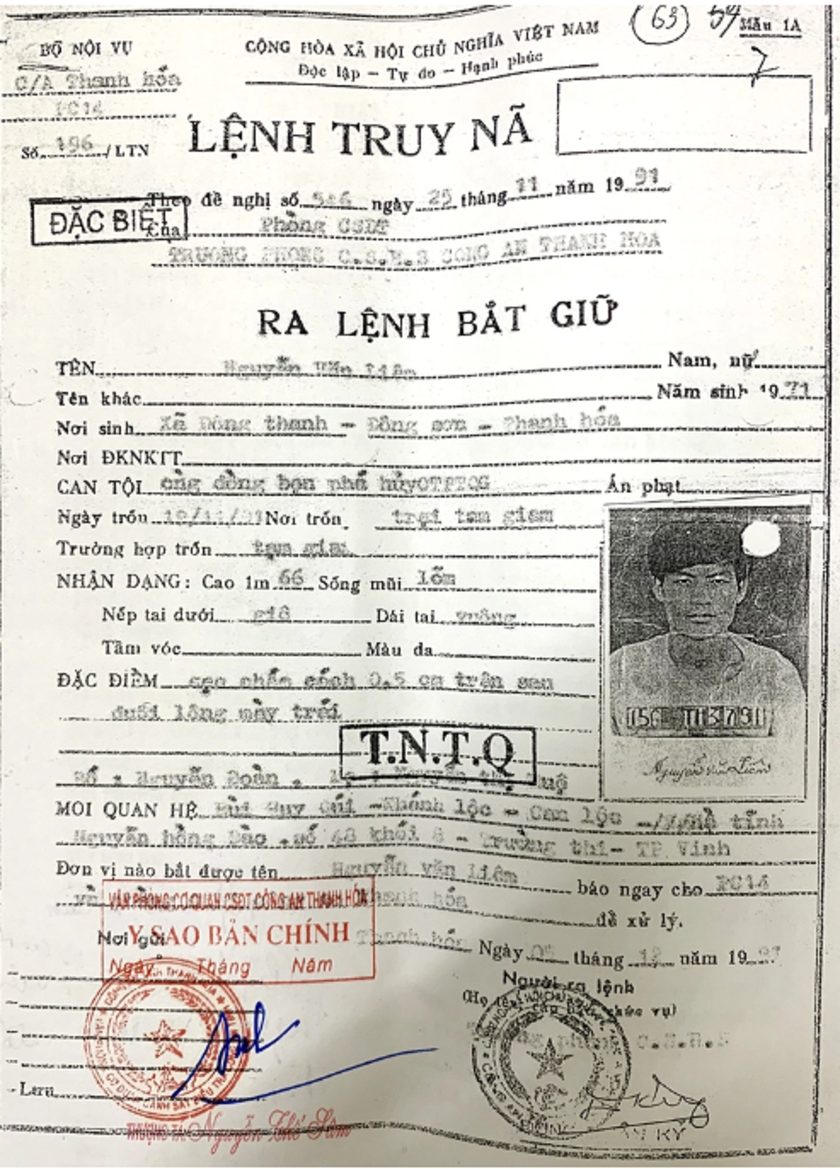 63 54 Mẫu 1A
BỘ NỘI VỤ
CỘNG HÒA XÃ HỘI CHỦ NGHĨA VIỆT NAM
C/A Thanh hóa
Độc lập - Tự do - Hạnh phúc
7
PC14
Số 196 /LTN
LỆNH TRUY NÃ
Theo đề nghị số ngày 25 tháng 11 năm 19 91
ĐẶC BIỆT
Của Phòng CSDT
TRƯỞNG PHÒNG C.S.H.S CÔNG AN THANH HOA
RA LỆNH BẮT GIỮ
TÊN Nguyễn Văn Liêm Nam, nữ
Tên khác Năm sinh 19 71
Nơi sinh Xã Đông thanh - Đông sơn - Thanh hóa
Nơi ĐKNKTT
CAN TỘI đồng bọn phá hủy Án phạt
Ngày trốn Nơi trốn trại tạm giam
Trường hợp trốn tạm giam
NHẬN DẠNG: Cao 1m 66 Sống mũi lõm
Nếp tai dưới Dái tai vuông
Tầm vóc Màu da
ĐẶC ĐIỂM sẹo chấm cách 0,5 cm trên sau
đuôi lông mày trái
T.N.T.Q
Nguyễn Văn Liêm
Bố : Nguyễn Đoàn . Mẹ : Nguyễn thị Huệ
MOI QUAN HỆ Bùi Huy - Khánh lộc - Can lộc - tĩnh
Nguyễn hồng Đào . số 48 khối 8 - Trường thi - TP Vinh
Đơn vị nào bắt được tên Nguyễn văn Liêm báo ngay cho PC14
hóa để xử lý.
VĂN PHÒNG CƠ QUAN CSĐT CÔNG AN THANH HÓA
Nơi gửi
Y SAO BẢN CHÍNH
Ngày Tháng Năm
Thanh hóa Ngày tháng 12 năm 19
Người ra lệnh
phòng C.S.H.S
THƯỢNG TÁ Nguyễn Thế Sâm